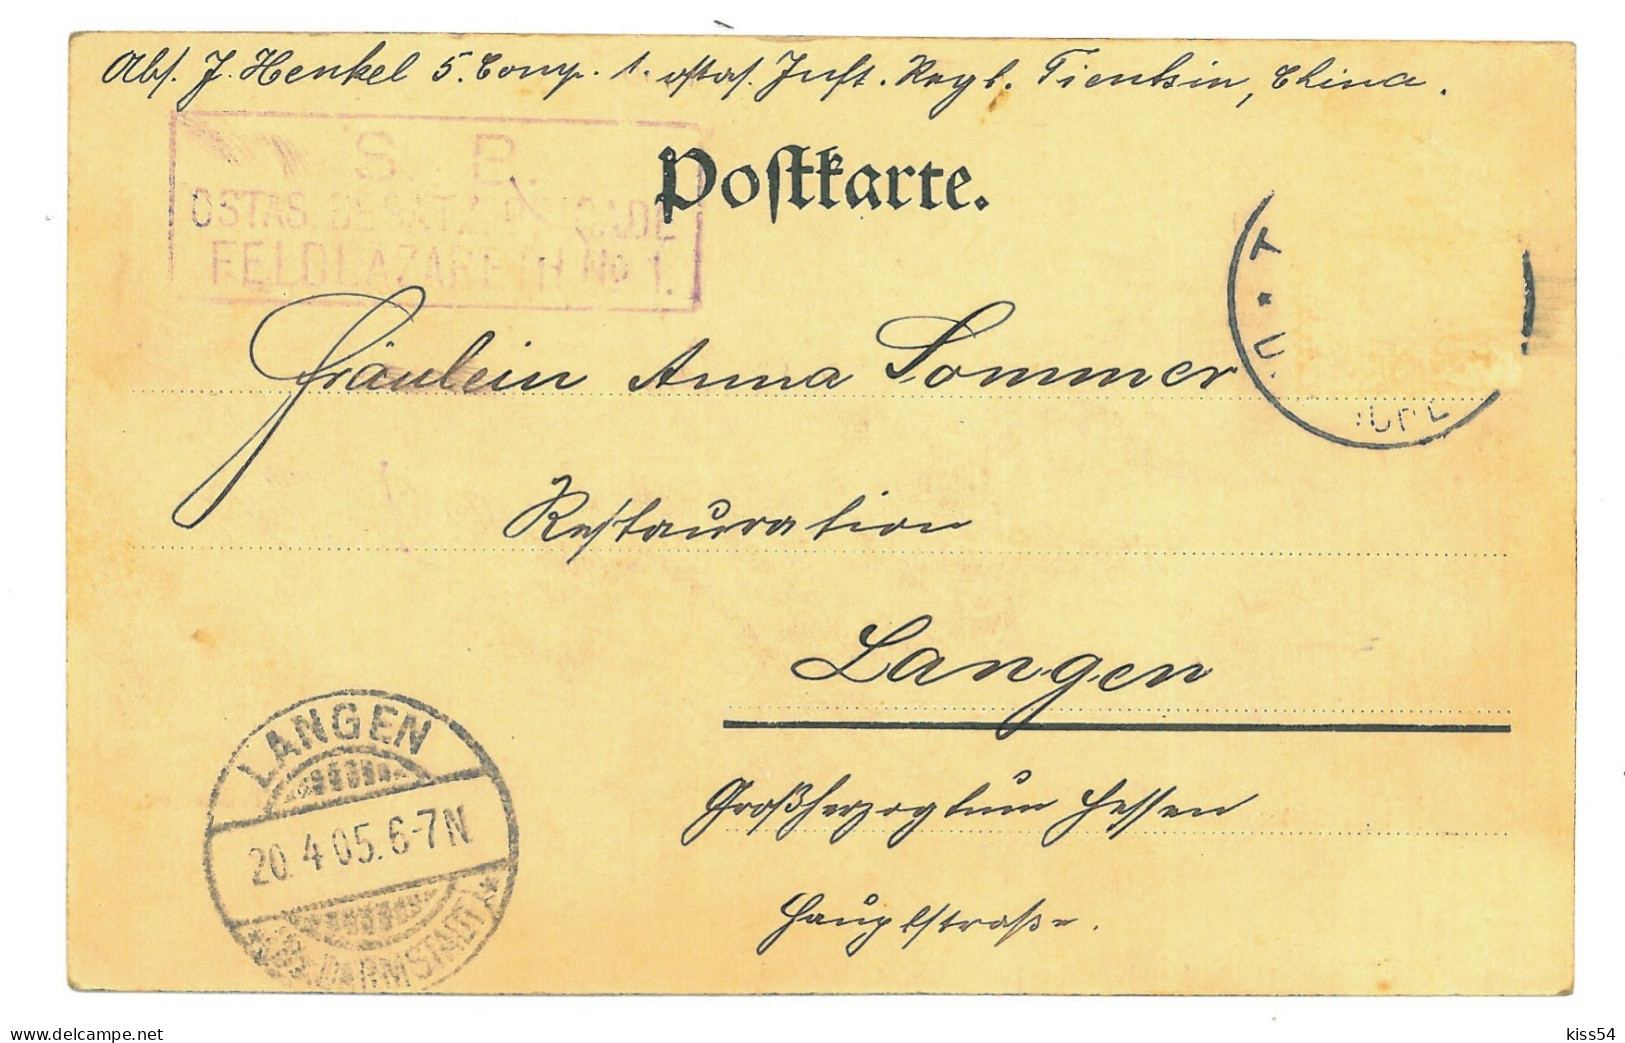 Abs. J. Henkel 5. Comp. 1. ostas. Inft. Regt. Tientsin, China.
S. B.
OSTAS. BESATZ. BRIGADE
FELDLAZARETH No 1.
Postkarte.
Fräulein Anna Sommer
Restauration
Langen
Großherzogtum Hessen
Hauptstraße.
LANGEN
20. 4 05. 6-7N
* (BZ. DARMSTADT) *
kiss54
www.delcampe.net